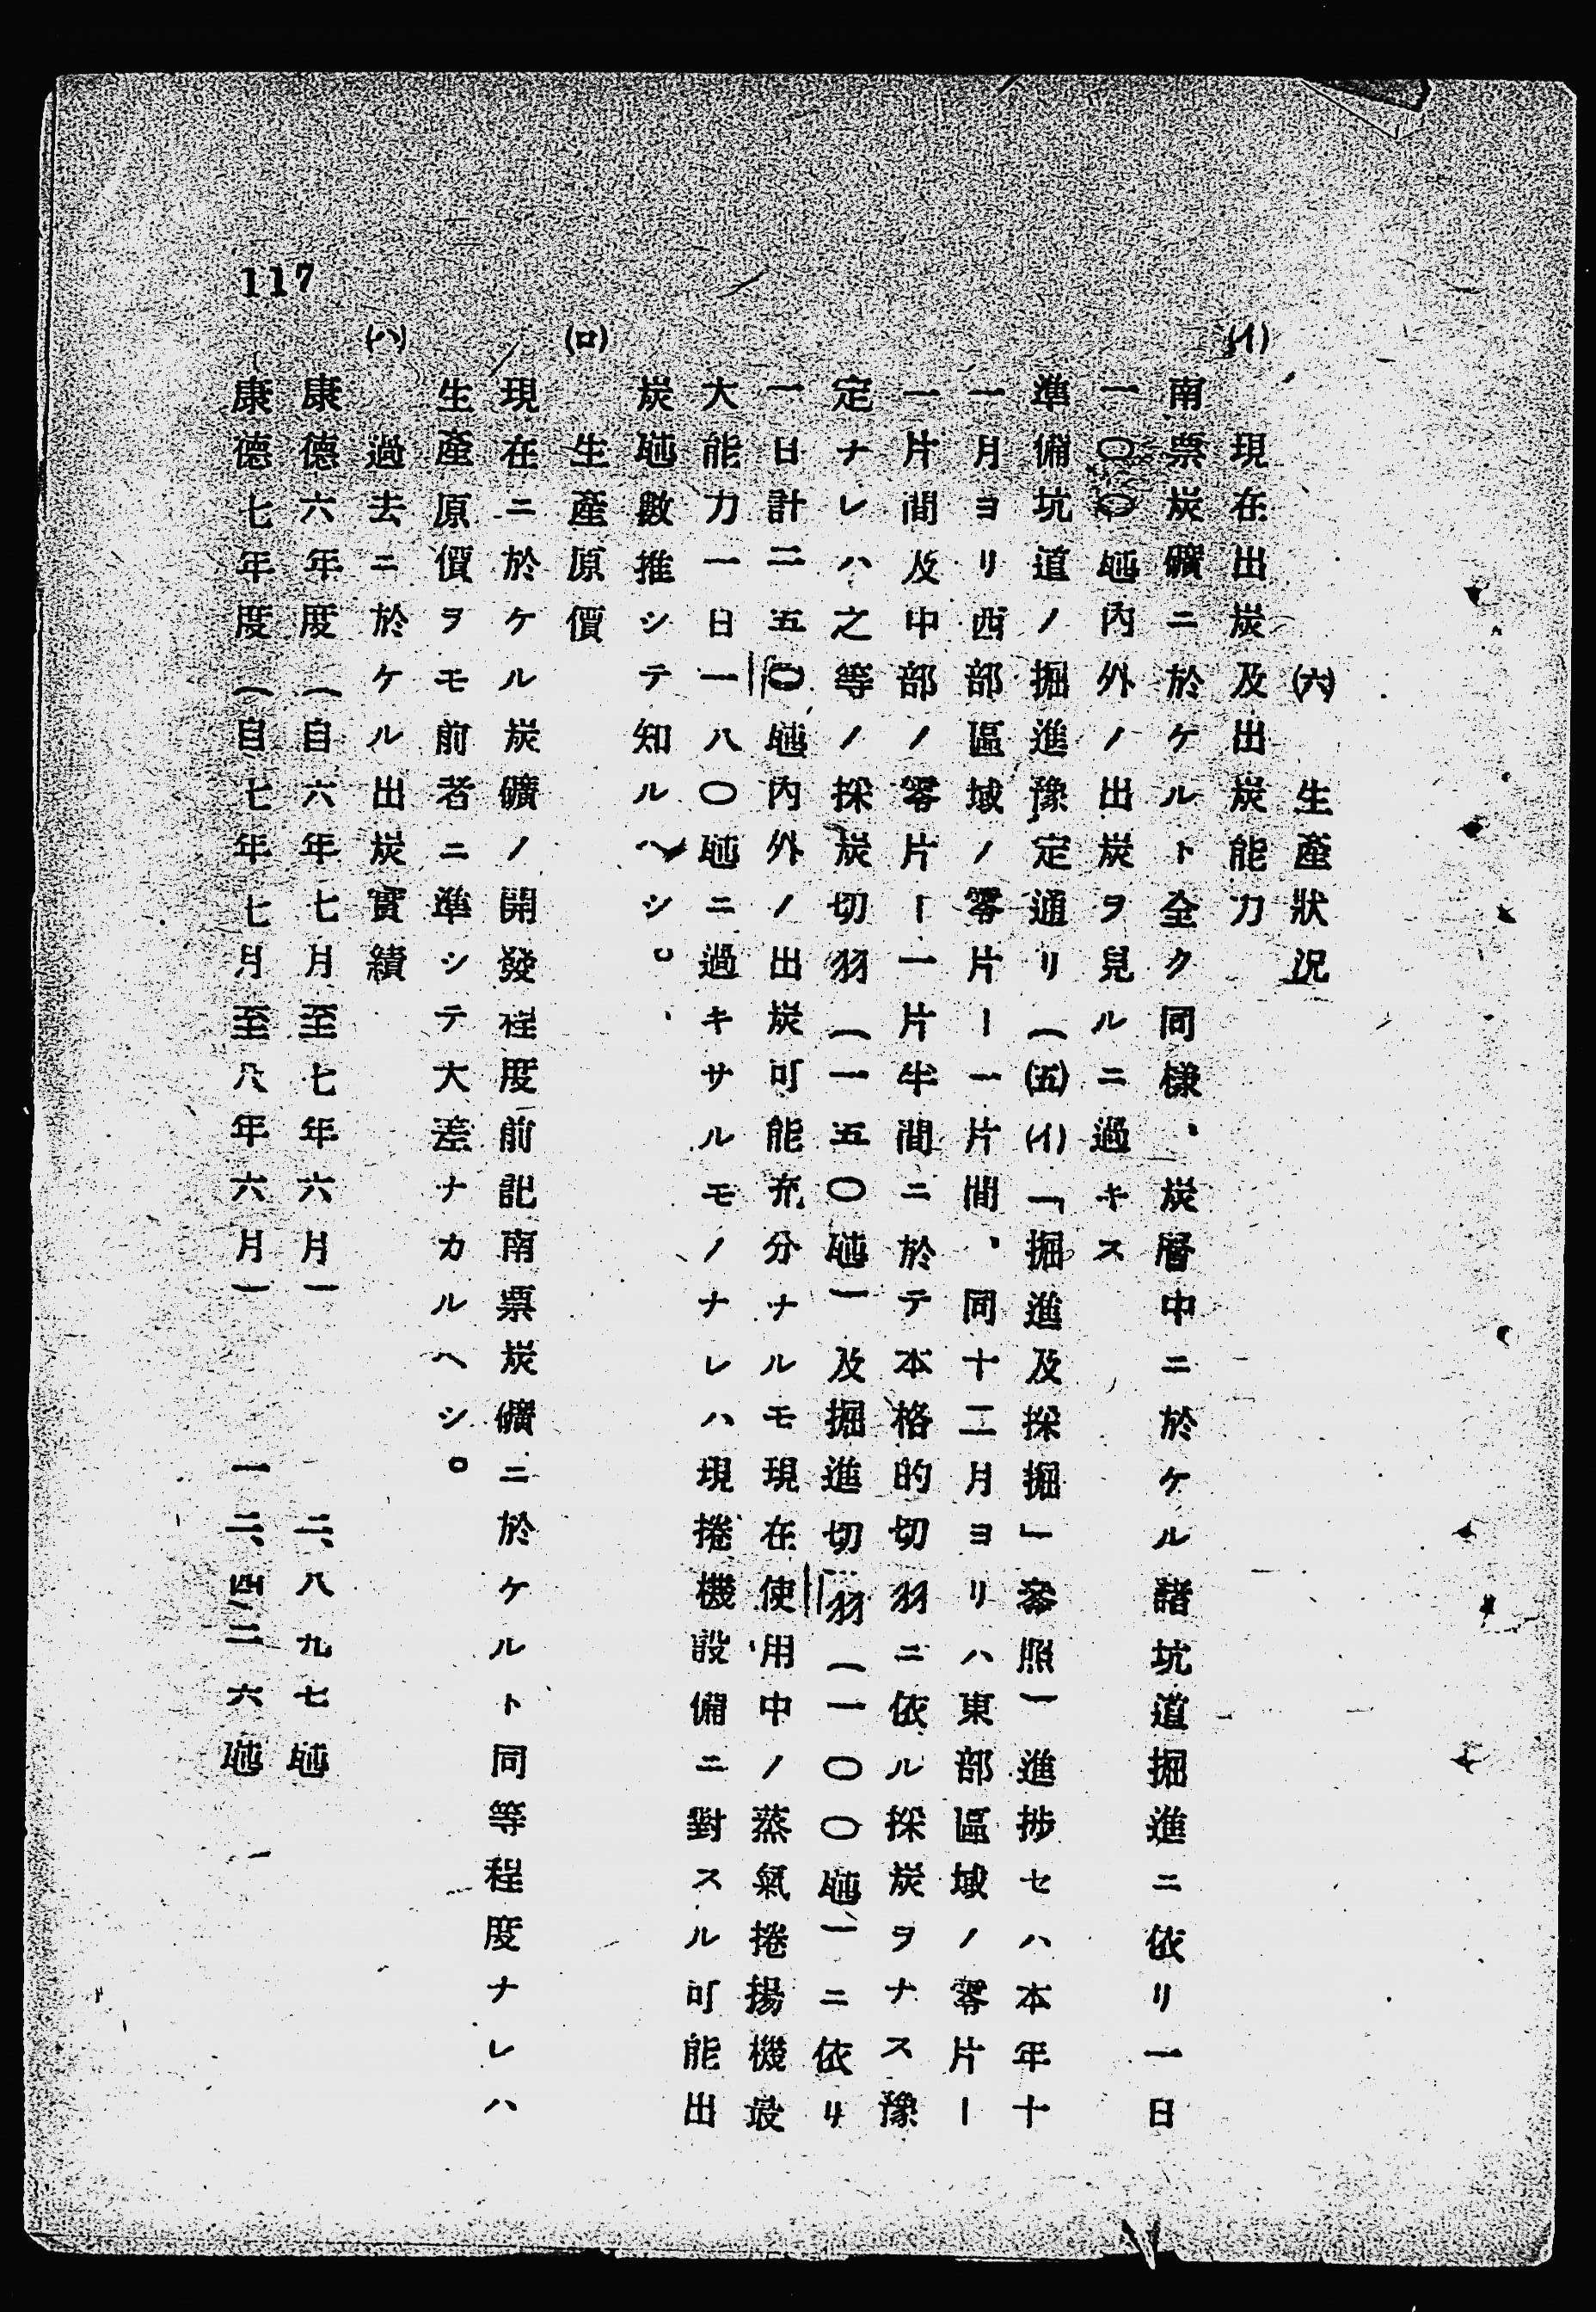 (六) 生產狀況
(イ) 現在出炭及出炭能力
南票炭礦ニ於ケルト全ク同樣、炭層中ニ於ケル諸坑道掘進ニ依リ一日
一〇〇瓲內外ノ出炭ヲ見ルニ過キス
準備坑道ノ掘進豫定通リ(五)(イ)「掘進及採掘」參照)進捗セハ本年十
一月ヨリ西部區域ノ零片ー一片間、同十二月ヨリハ東部區域ノ零片ー
一片間及中部ノ零片ー一片半間ニ於テ本格的切羽ニ依ル採炭ヲナス豫
定ナレハ之等ノ採炭切羽(一五〇瓲)及掘進切羽(一〇〇瓲)ニ依リ
一日計二五〇瓲內外ノ出炭可能充分ナルモ現在使用中ノ蒸氣捲揚機最
大能力一日一八〇瓲ニ過キサルモノナレハ現捲機設備ニ對スル可能出
炭瓲數推シテ知ルヘシ。
(ロ) 生產原價
現在ニ於ケル炭礦ノ開發程度前記南票炭礦ニ於ケルト同等程度ナレハ
生產原價ヲモ前者ニ準シテ大差ナカルヘシ。
(ハ) 過去ニ於ケル出炭實績
康德六年度(自六年七月至七年六月) 二、八九七瓲
康德七年度(自七年七月至八年六月) 一二、四二六瓲
117